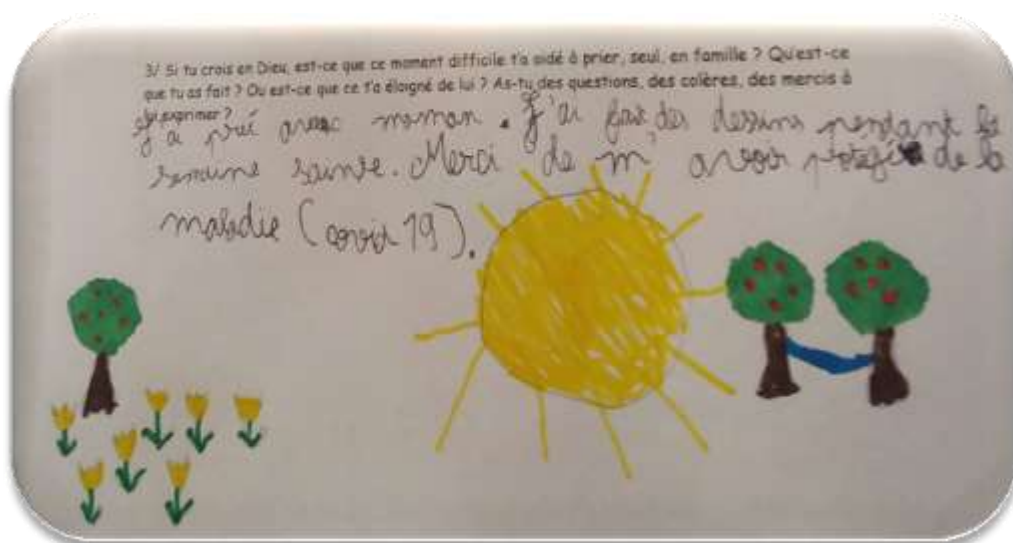 3/ Si tu crois en Dieu, est-ce que ce moment difficile t'a aidé à prier, seul, en famille ? Qu'est-ce
que tu as fait ? Ou est-ce que ce t'a éloigné de lui ? As-tu des questions, des colères, des mercis à
lui exprimer ?
J'a prié avec maman. J'ai fait des dessins pendant la
semaine sainte. Merci de m'avoir protégé de la
maladie (covid 19).